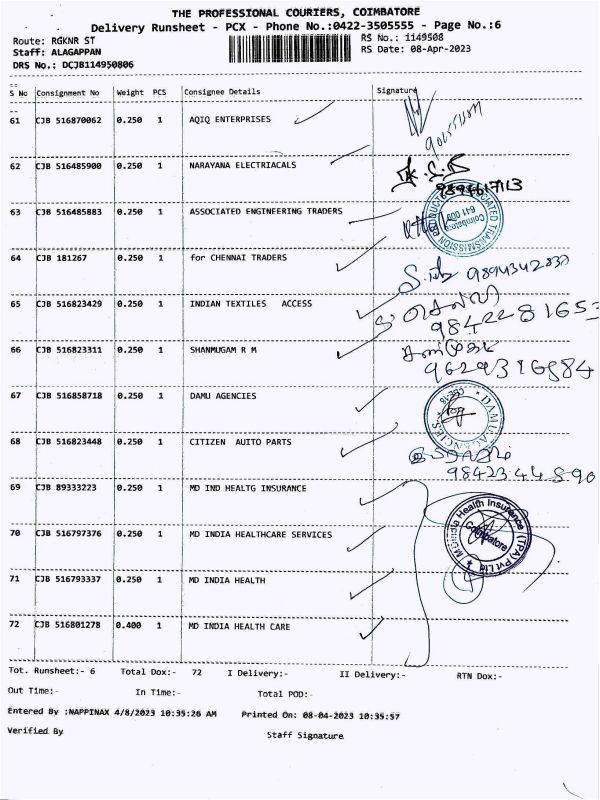 THE PROFESSIONAL COURIERS, COIMBATORE
Delivery Runsheet - PCX - Phone No.:0422-3505555 - Page No.:6
Route: RGKNR ST
RS No.: 1149508
Staff: ALAGAPPAN
RS Date: 08-Apr-2023
DRS No.: DCJB114950806
S No Consignment No Weight PCS Consignee Details Signature
61 CJB 516870062 0.250 1 AQIQ ENTERPRISES
62 CJB 516485900 0.250 1 NARAYANA ELECTRIACALS
63 CJB 516485883 0.250 1 ASSOCIATED ENGINEERING TRADERS
Coimbatore 641 009
64 CJB 181267 0.250 1 for CHENNAI TRADERS
65 CJB 516823429 0.250 1 INDIAN TEXTILES ACCESS
9842281653
66 CJB 516823311 0.250 1 SHANMUGAM R M
9629316984
67 CJB 516858718 0.250 1 DAMU AGENCIES
DAMU AGENCIES
68 CJB 516823448 0.250 1 CITIZEN AUITO PARTS
69 CJB 89333223 0.250 1 MD IND HEALTG INSURANCE
MDIndia Health Insurance (TPA) Pvt Ltd
Coimbatore
70 CJB 516797376 0.250 1 MD INDIA HEALTHCARE SERVICES
71 CJB 516793337 0.250 1 MD INDIA HEALTH
72 CJB 516801278 0.400 1 MD INDIA HEALTH CARE
Tot. Runsheet:- 6 Total Dox:- 72 I Delivery:- II Delivery:- RTN Dox:-
Out Time:- In Time:- Total POD:-
Entered By :NAPPINAX 4/8/2023 10:35:26 AM Printed On: 08-04-2023 10:35:57
Verified By Staff Signature